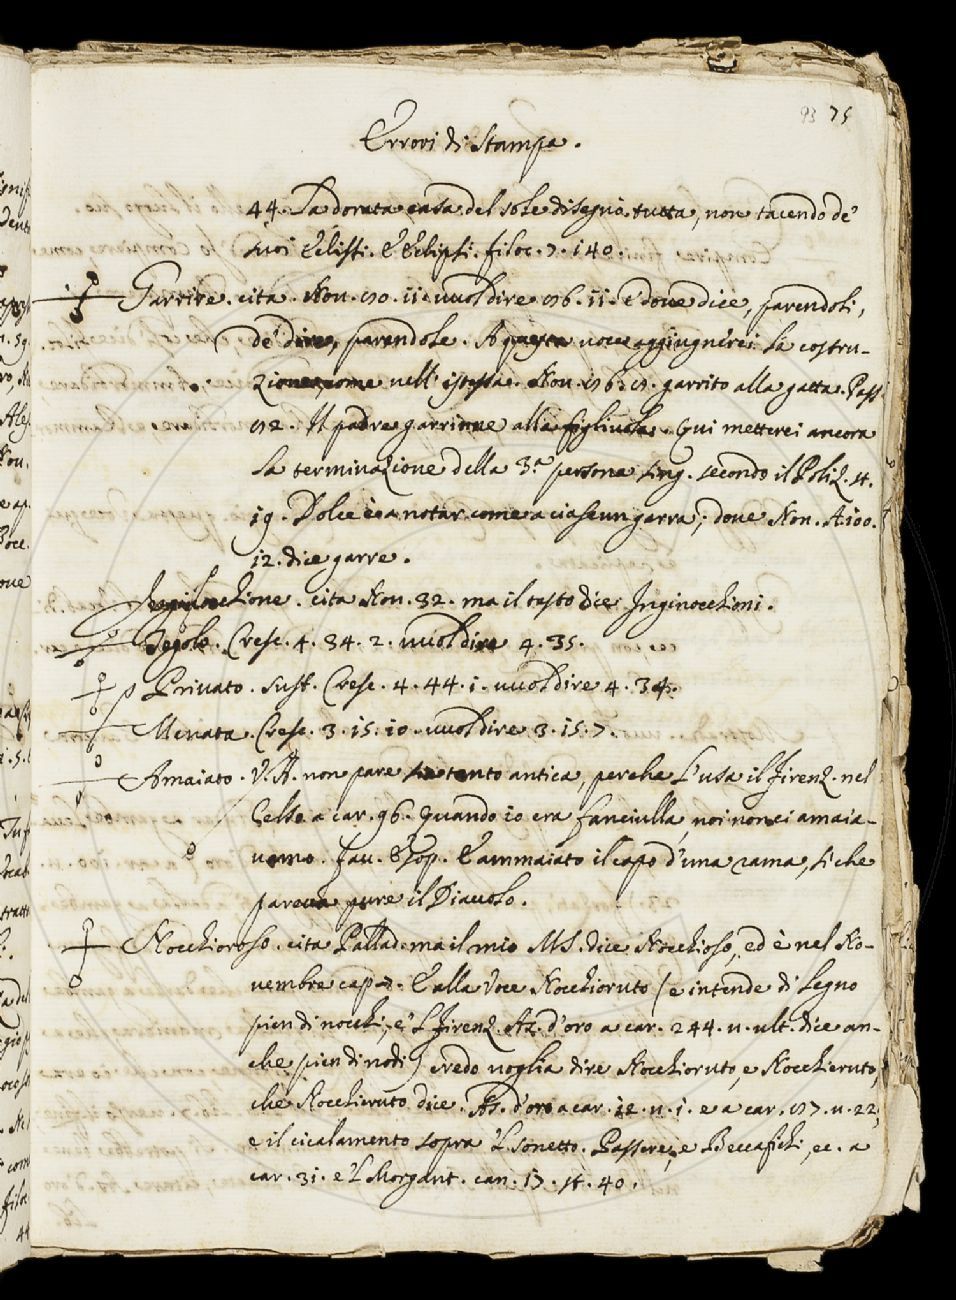 93 75
Errori di Stampa.
44. La dorata casa del sole disegnò tutta, non tacendo de'
suoi Eclissi. Eclipsi. filoc. 7. 140.
Garrire. cita. Nov. 50. 11. vuol dire 56. 11. E dove dice, parendoli,
de' dire, parendole. A questa voce aggiugnerei la costru-
zione, come nell' istessa. Nov. 56. garrito alla gatta. Pass.
52. Il padre garrinne alla figliuola. Qui metterei ancora
la terminazione della 3.ª persona sing. secondo il Poliz. st.
19. Dolce è a notar come a ciascun garra; dove Nov. A. 100.
12. dice garre.
cita Nov. 32. ma il testo dice Inginocchioni.
Cresc. 4. 34. 2. vuol dire 4. 35.
Privato. sust. Cresc. 4. 44. 1. vuol dire 4. 34.
Menata. Cresc. 3. 15. 10. vuol dire 3. 15. 7.
Amaiato. V. A. non pare tanto antica, perche l'usa il Firenz. nel
Celso a car. 96. Quando io era fanciulla, noi non ci amaia-
vamo. Fav. Esop. E ammaiato il capo d'una rama, siche
pareva pure il Diavolo.
Nocchioroso. cita Pallad. ma il mio MS. dice Nocchioso, ed è nel No-
vembre cap. 7. E alla Voce Nocchioruto (e intende di legno
pien di nocchi, e 'l Firenz. As. d'oro a car. 244. v. ult. dice an-
che pien di nodi) credo voglia dire Nocchioruto, e Nocchieruto,
che Nocchieruto dice. As. d'oro a car. 12. v. 1. e a car. 57. v. 22,
e il cicalamento sopra 'l sonetto. Passere, e Beccafichi, ec. a
car. 31. e 'l Morgant. can. 17. st. 40.